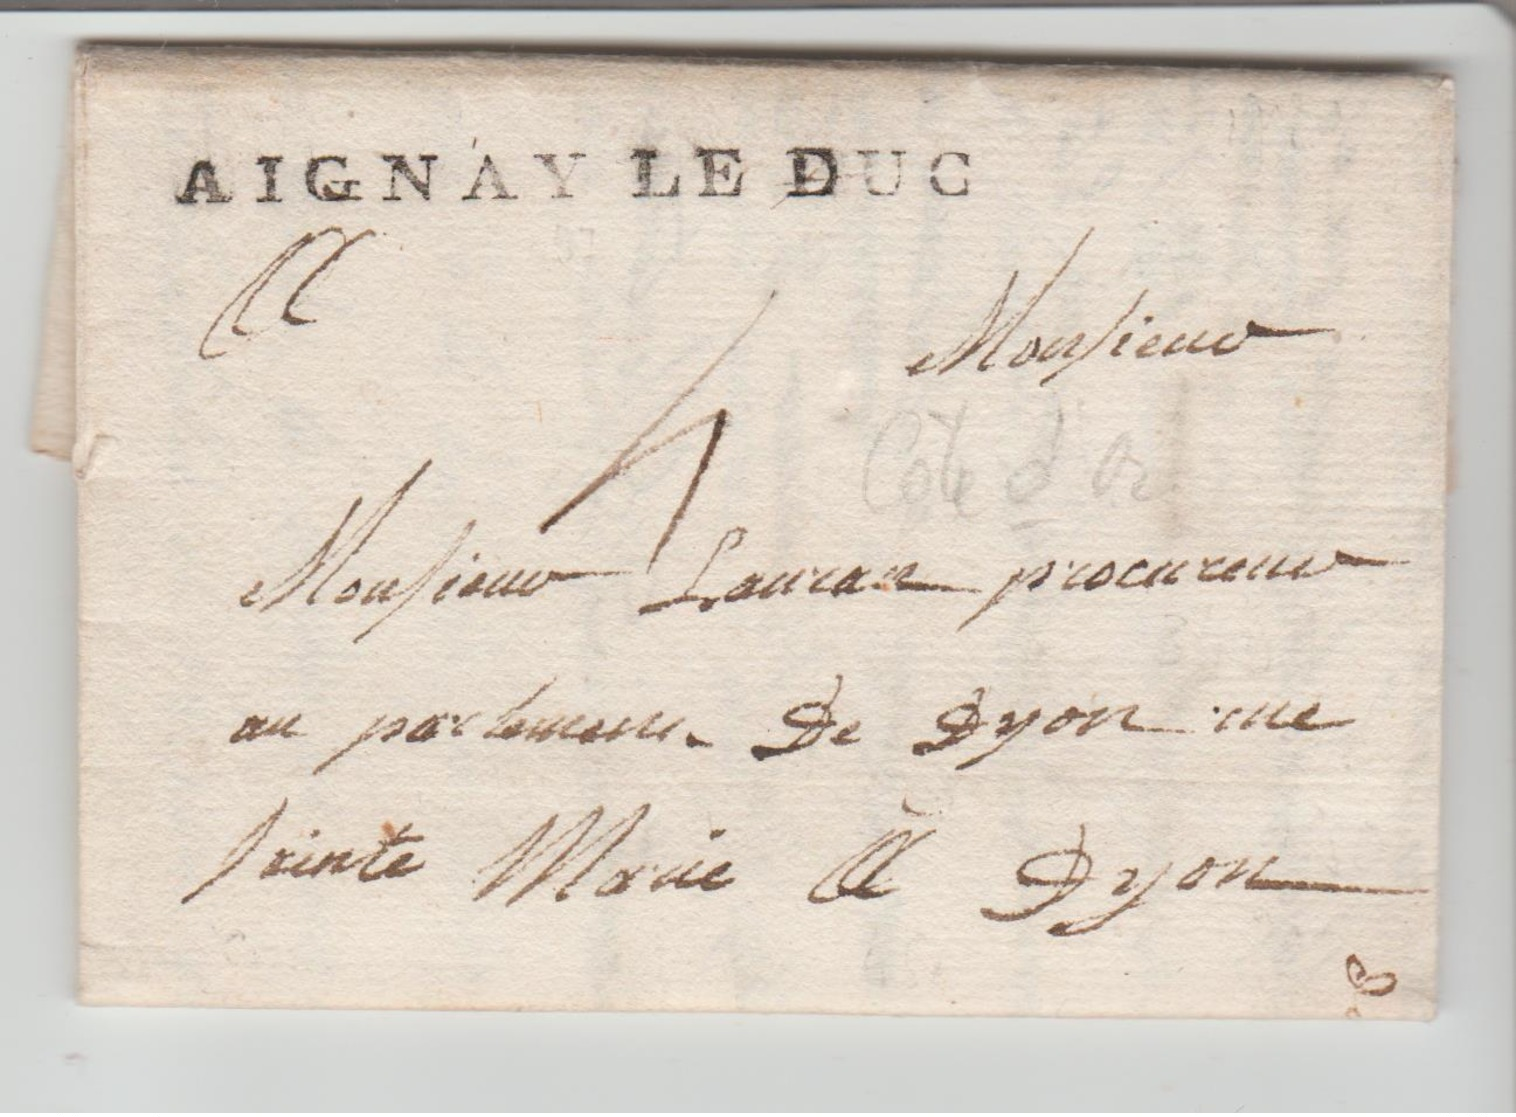 AIGNAY LE DUC
A
Monsieur
4
Côte d'Or
Monsieur Lauran procureur
au parlement De Dyon rue
sainte Marie A Dyon